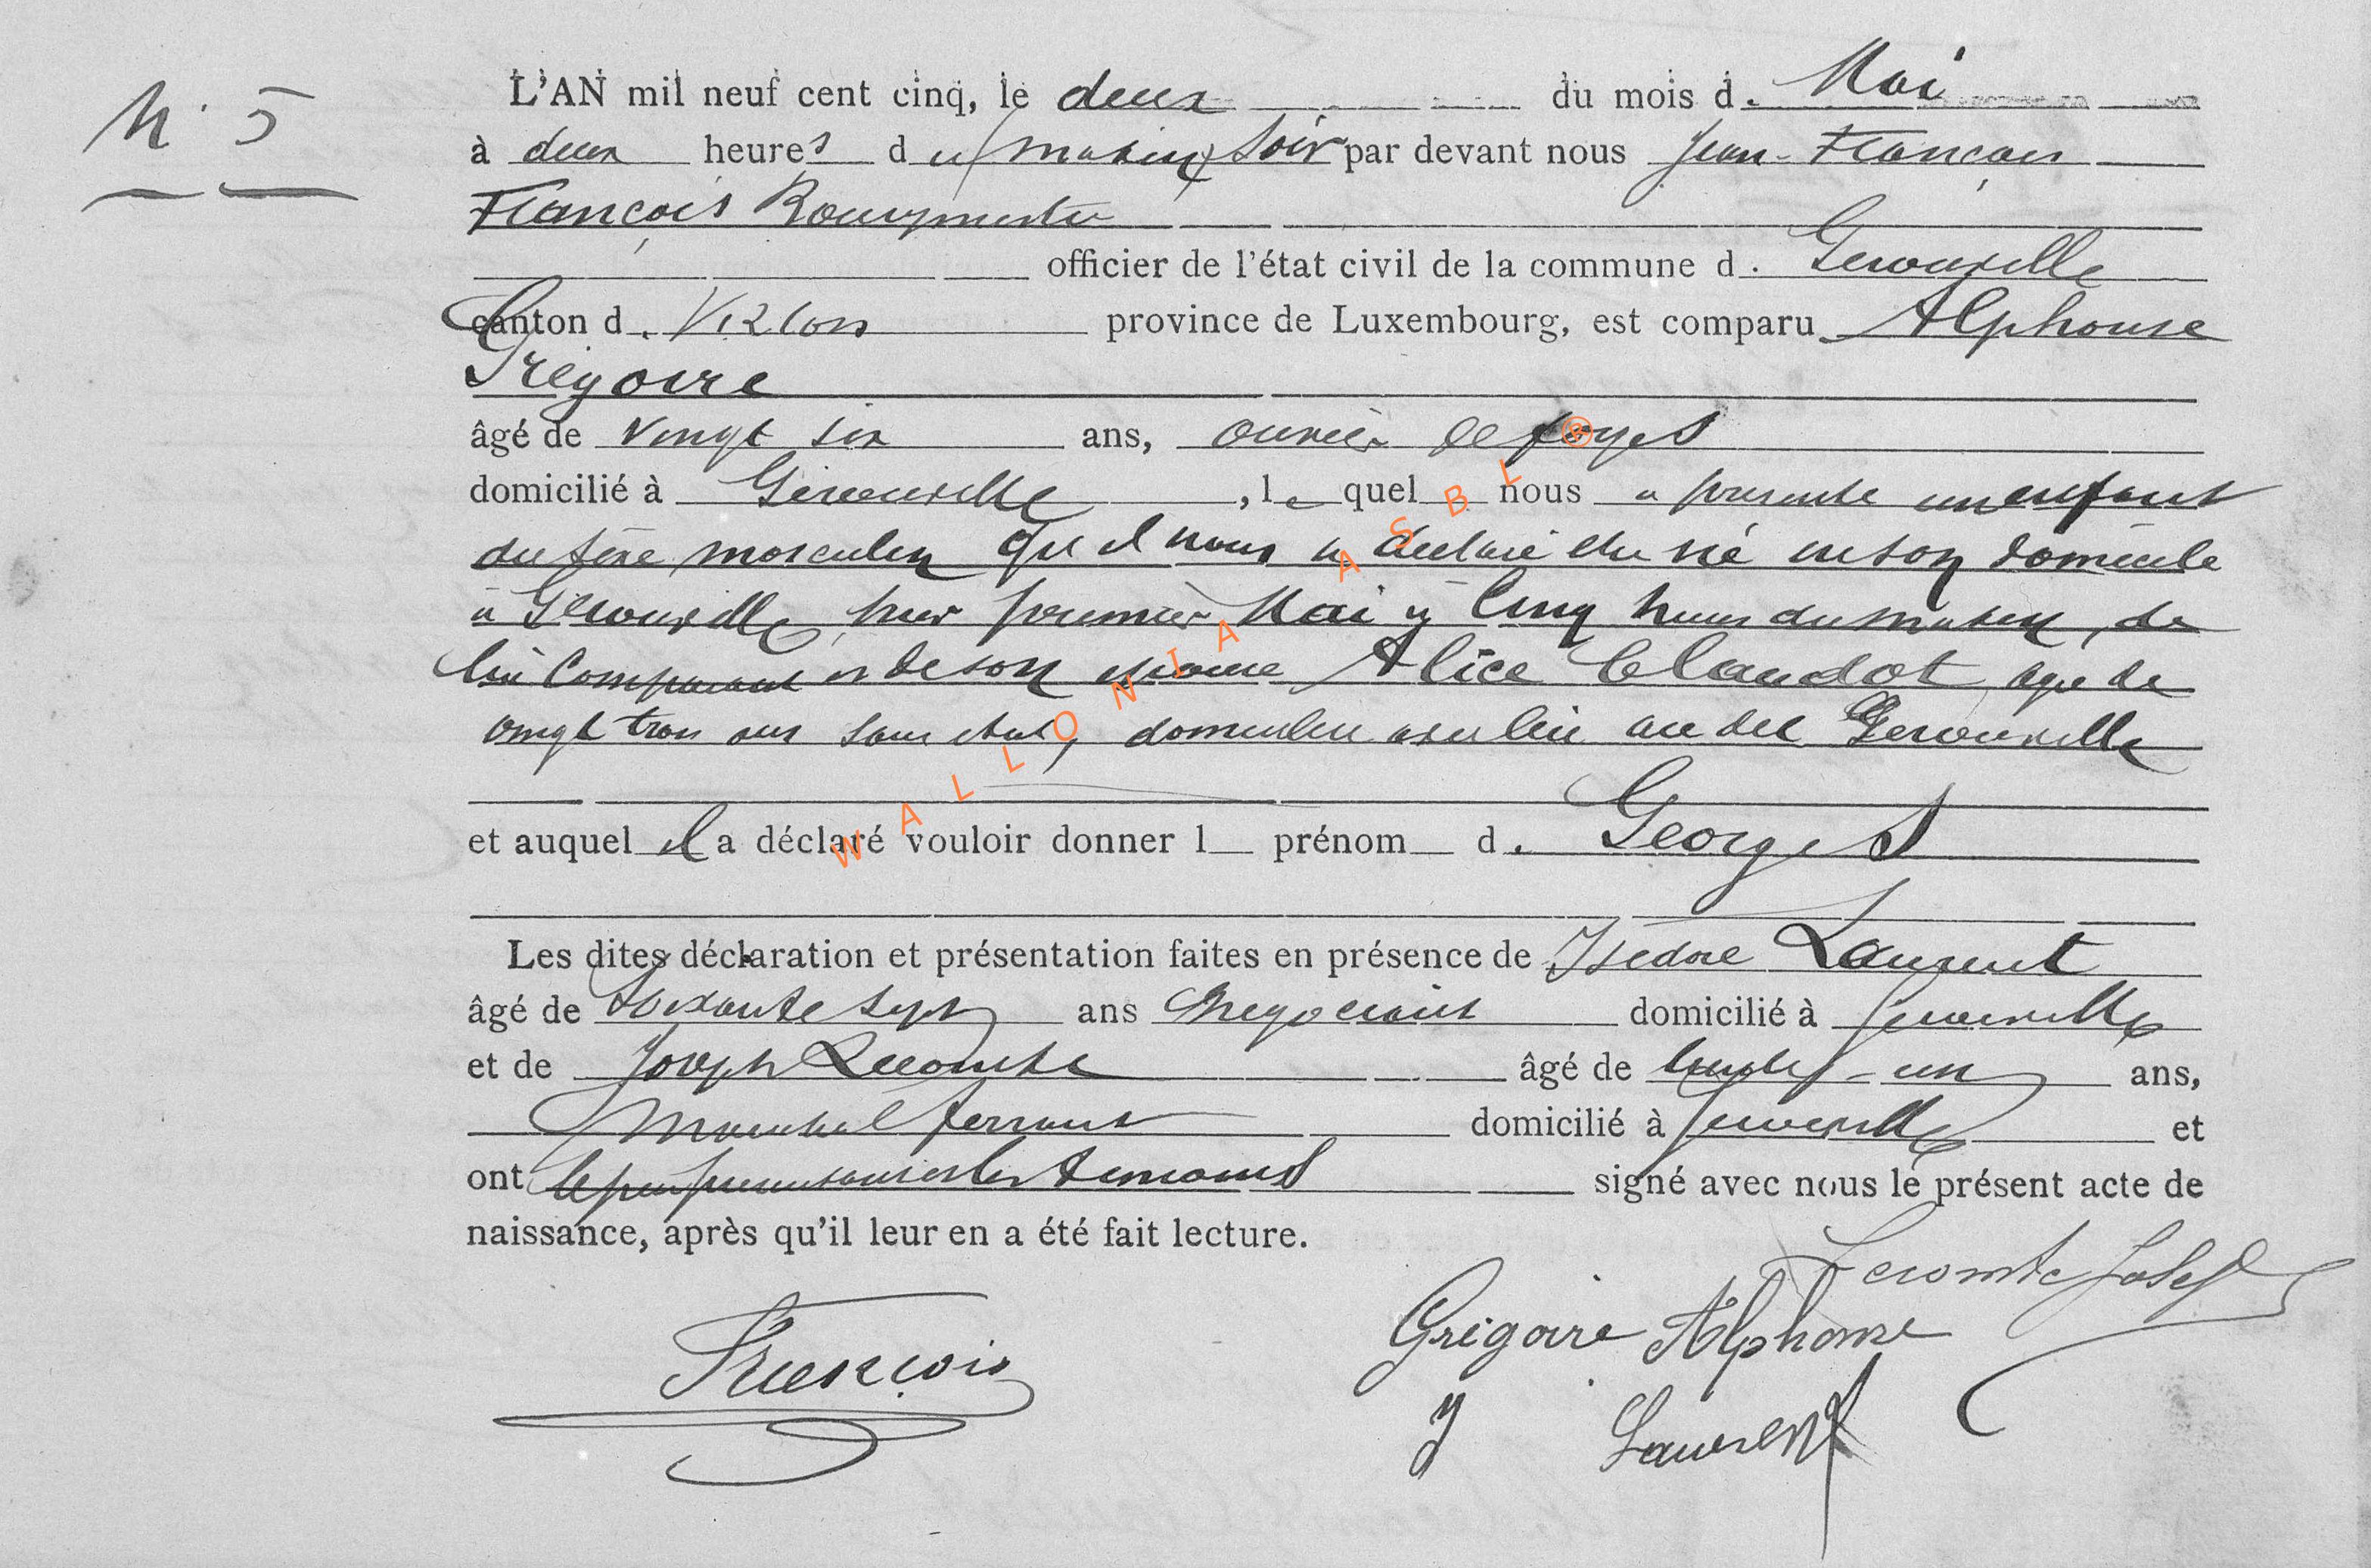 N° 5
L'AN mil neuf cent cinq, le deux du mois d. Mai
à deux heures du (matin) soir par devant nous Jean-François
François Bourgmestre
officier de l'état civil de la commune d. Gerouville
canton d. Virton province de Luxembourg, est comparu Alphonse
Grégoire
âgé de vingt six ans, ouvrier de forges
domicilié à Gerouville, le quel nous a présenté un enfant
du sexe masculin qu'il nous a déclaré être né en son domicile
à Gérouville, hier premier Mai à Cinq heures du matin, de
lui Comparant et de son épouse Alice Claudot, âgée de
vingt trois ans sans état, domiciliée avec lui au dit Gerouville
et auquel il a déclaré vouloir donner l prénom d. Georges
Les dites déclaration et présentation faites en présence de Isidore Laurent
âgé de soixante sept ans négociant domicilié à Gerouville
et de Joseph Lecomte âgé de trente-un ans,
Maréchal ferrant domicilié à Gerouville et
ont le père présentant et les témoins signé avec nous le présent acte de
naissance, après qu'il leur en a été fait lecture.
Lecomte Josef
Grégoire Alphonse
François
J Laurent
WALLONIA ASBL ®